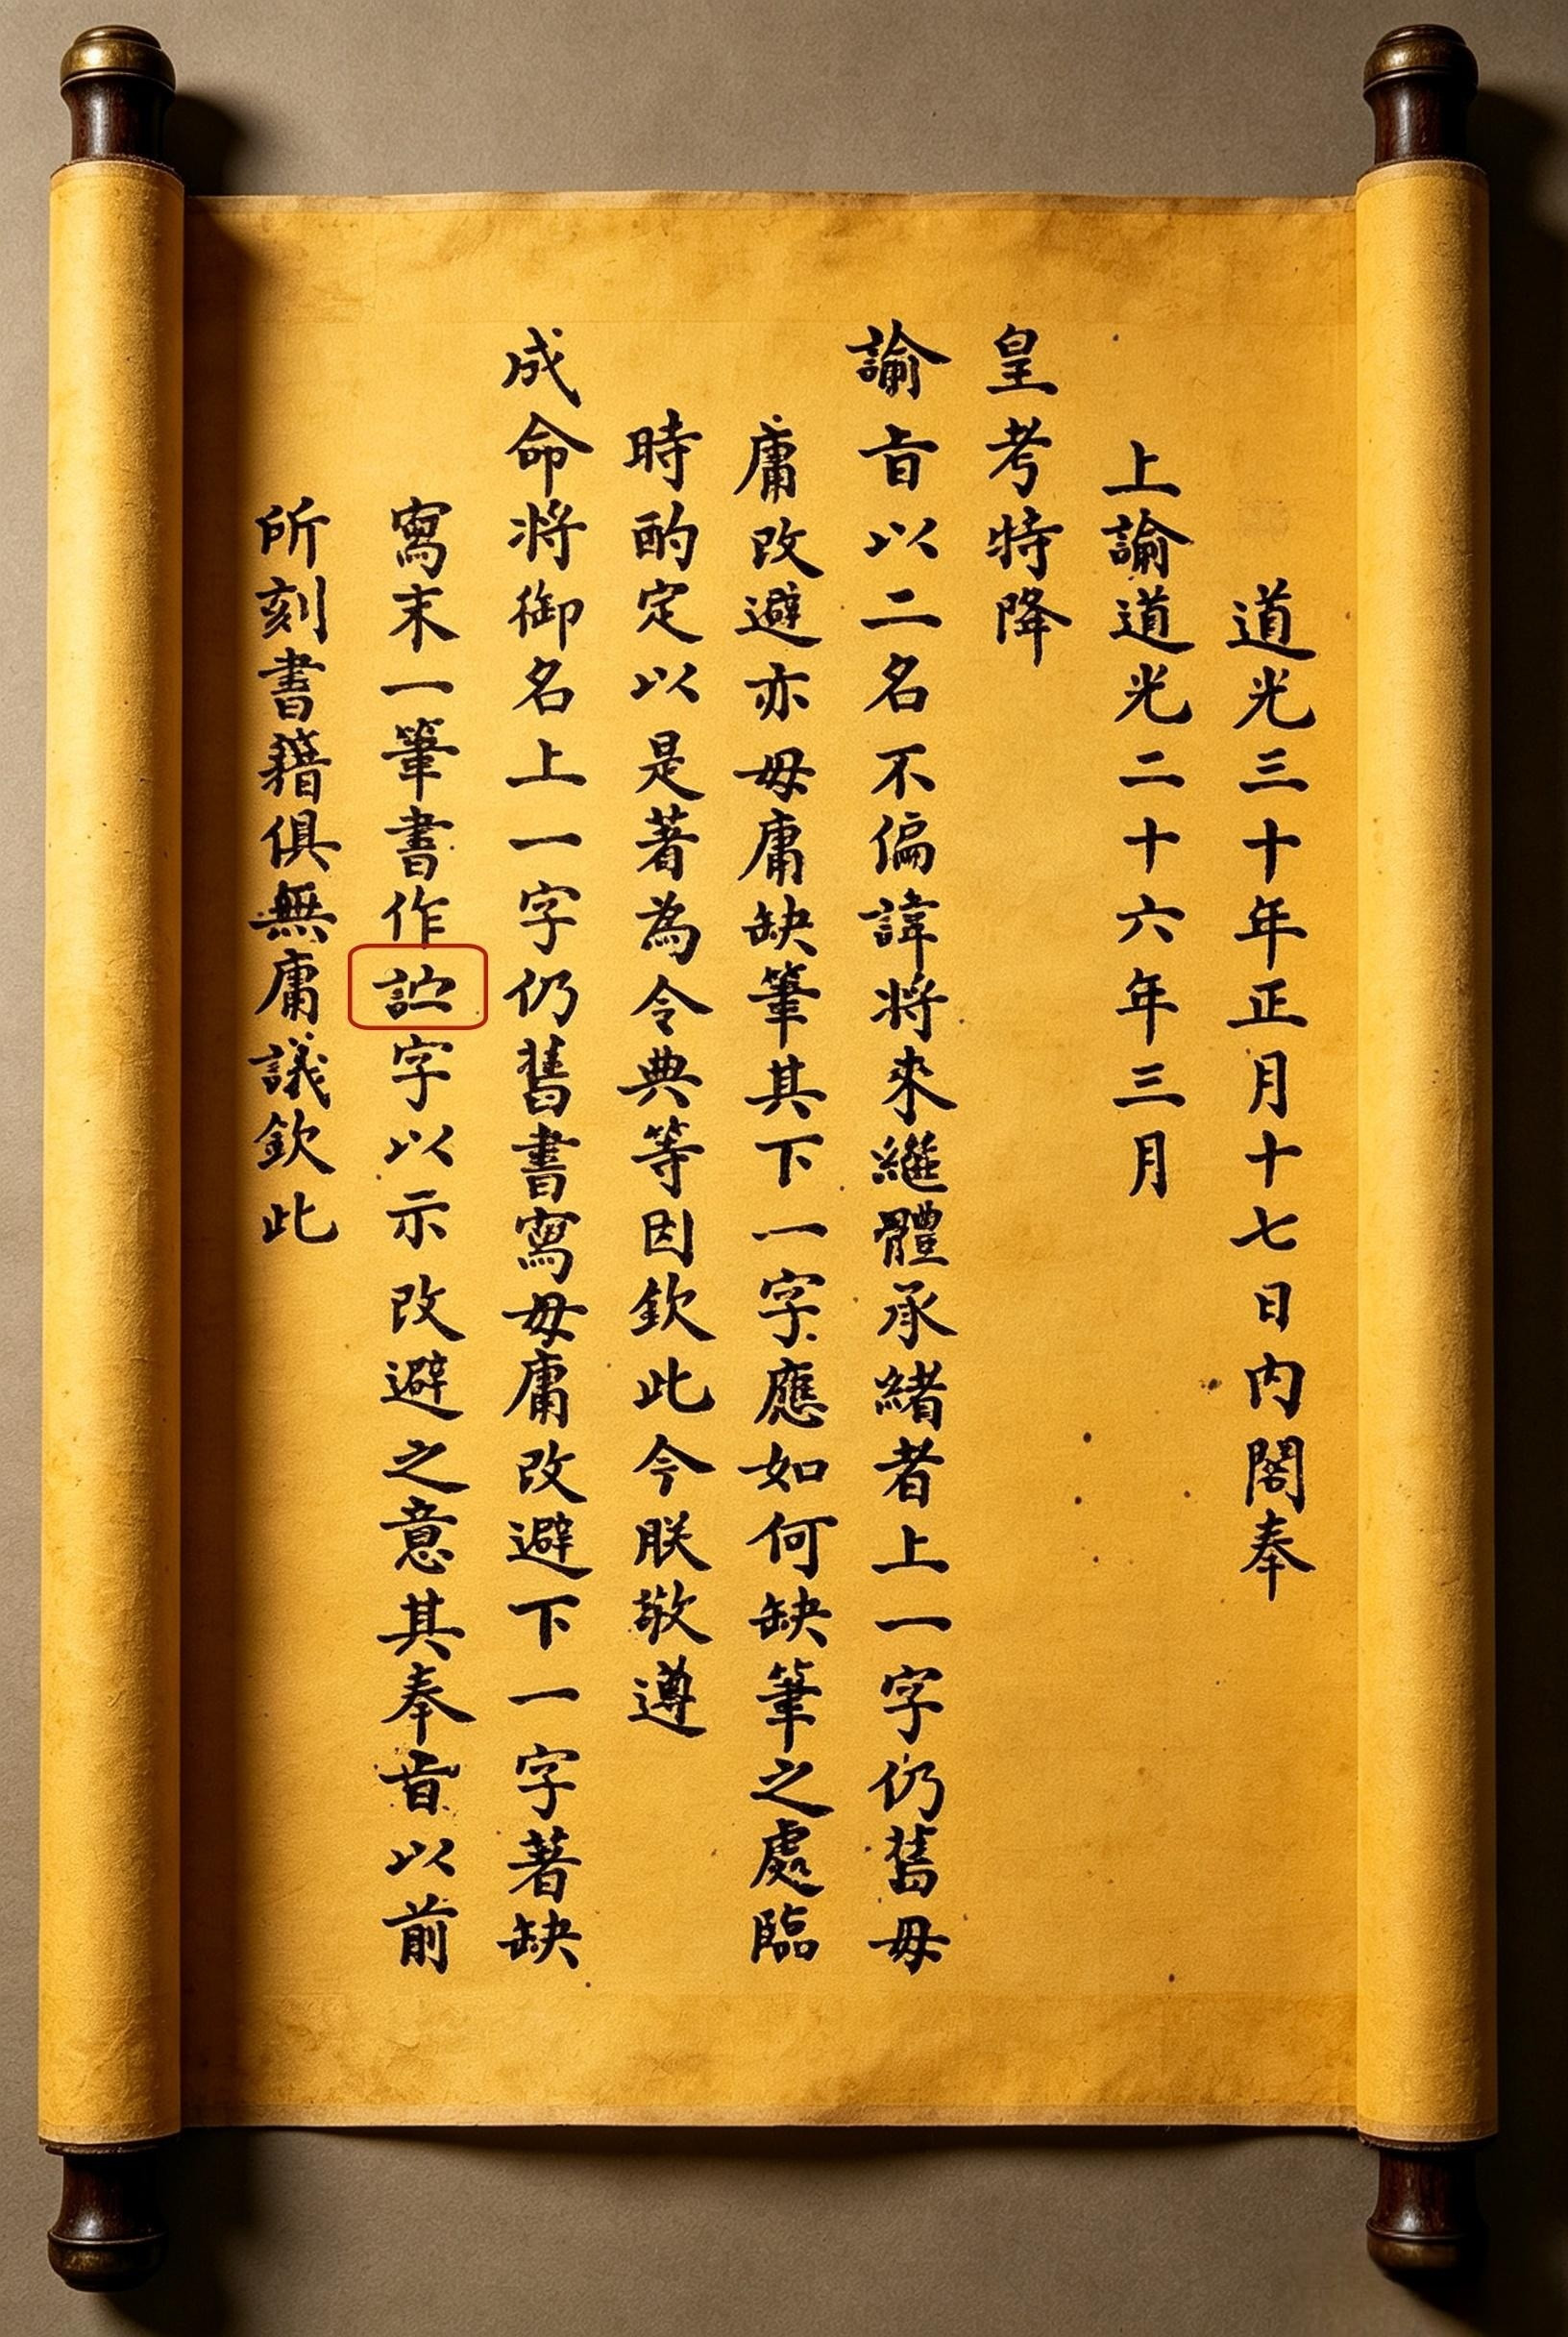 道光三十年正月十七日内閣奉
上諭道光二十六年三月
皇考特降
諭旨以二名不偏諱將來繼體承緒者上一字仍舊毋
庸改避亦毋庸缺筆其下一字應如何缺筆之處臨
時酌定以是著為令典等因欽此今朕敬遵
成命將御名上一字仍舊書寫毋庸改避下一字著缺
寫末一筆書作⿰言⿱宀一字以示改避之意其奉旨以前
所刻書籍俱無庸議欽此